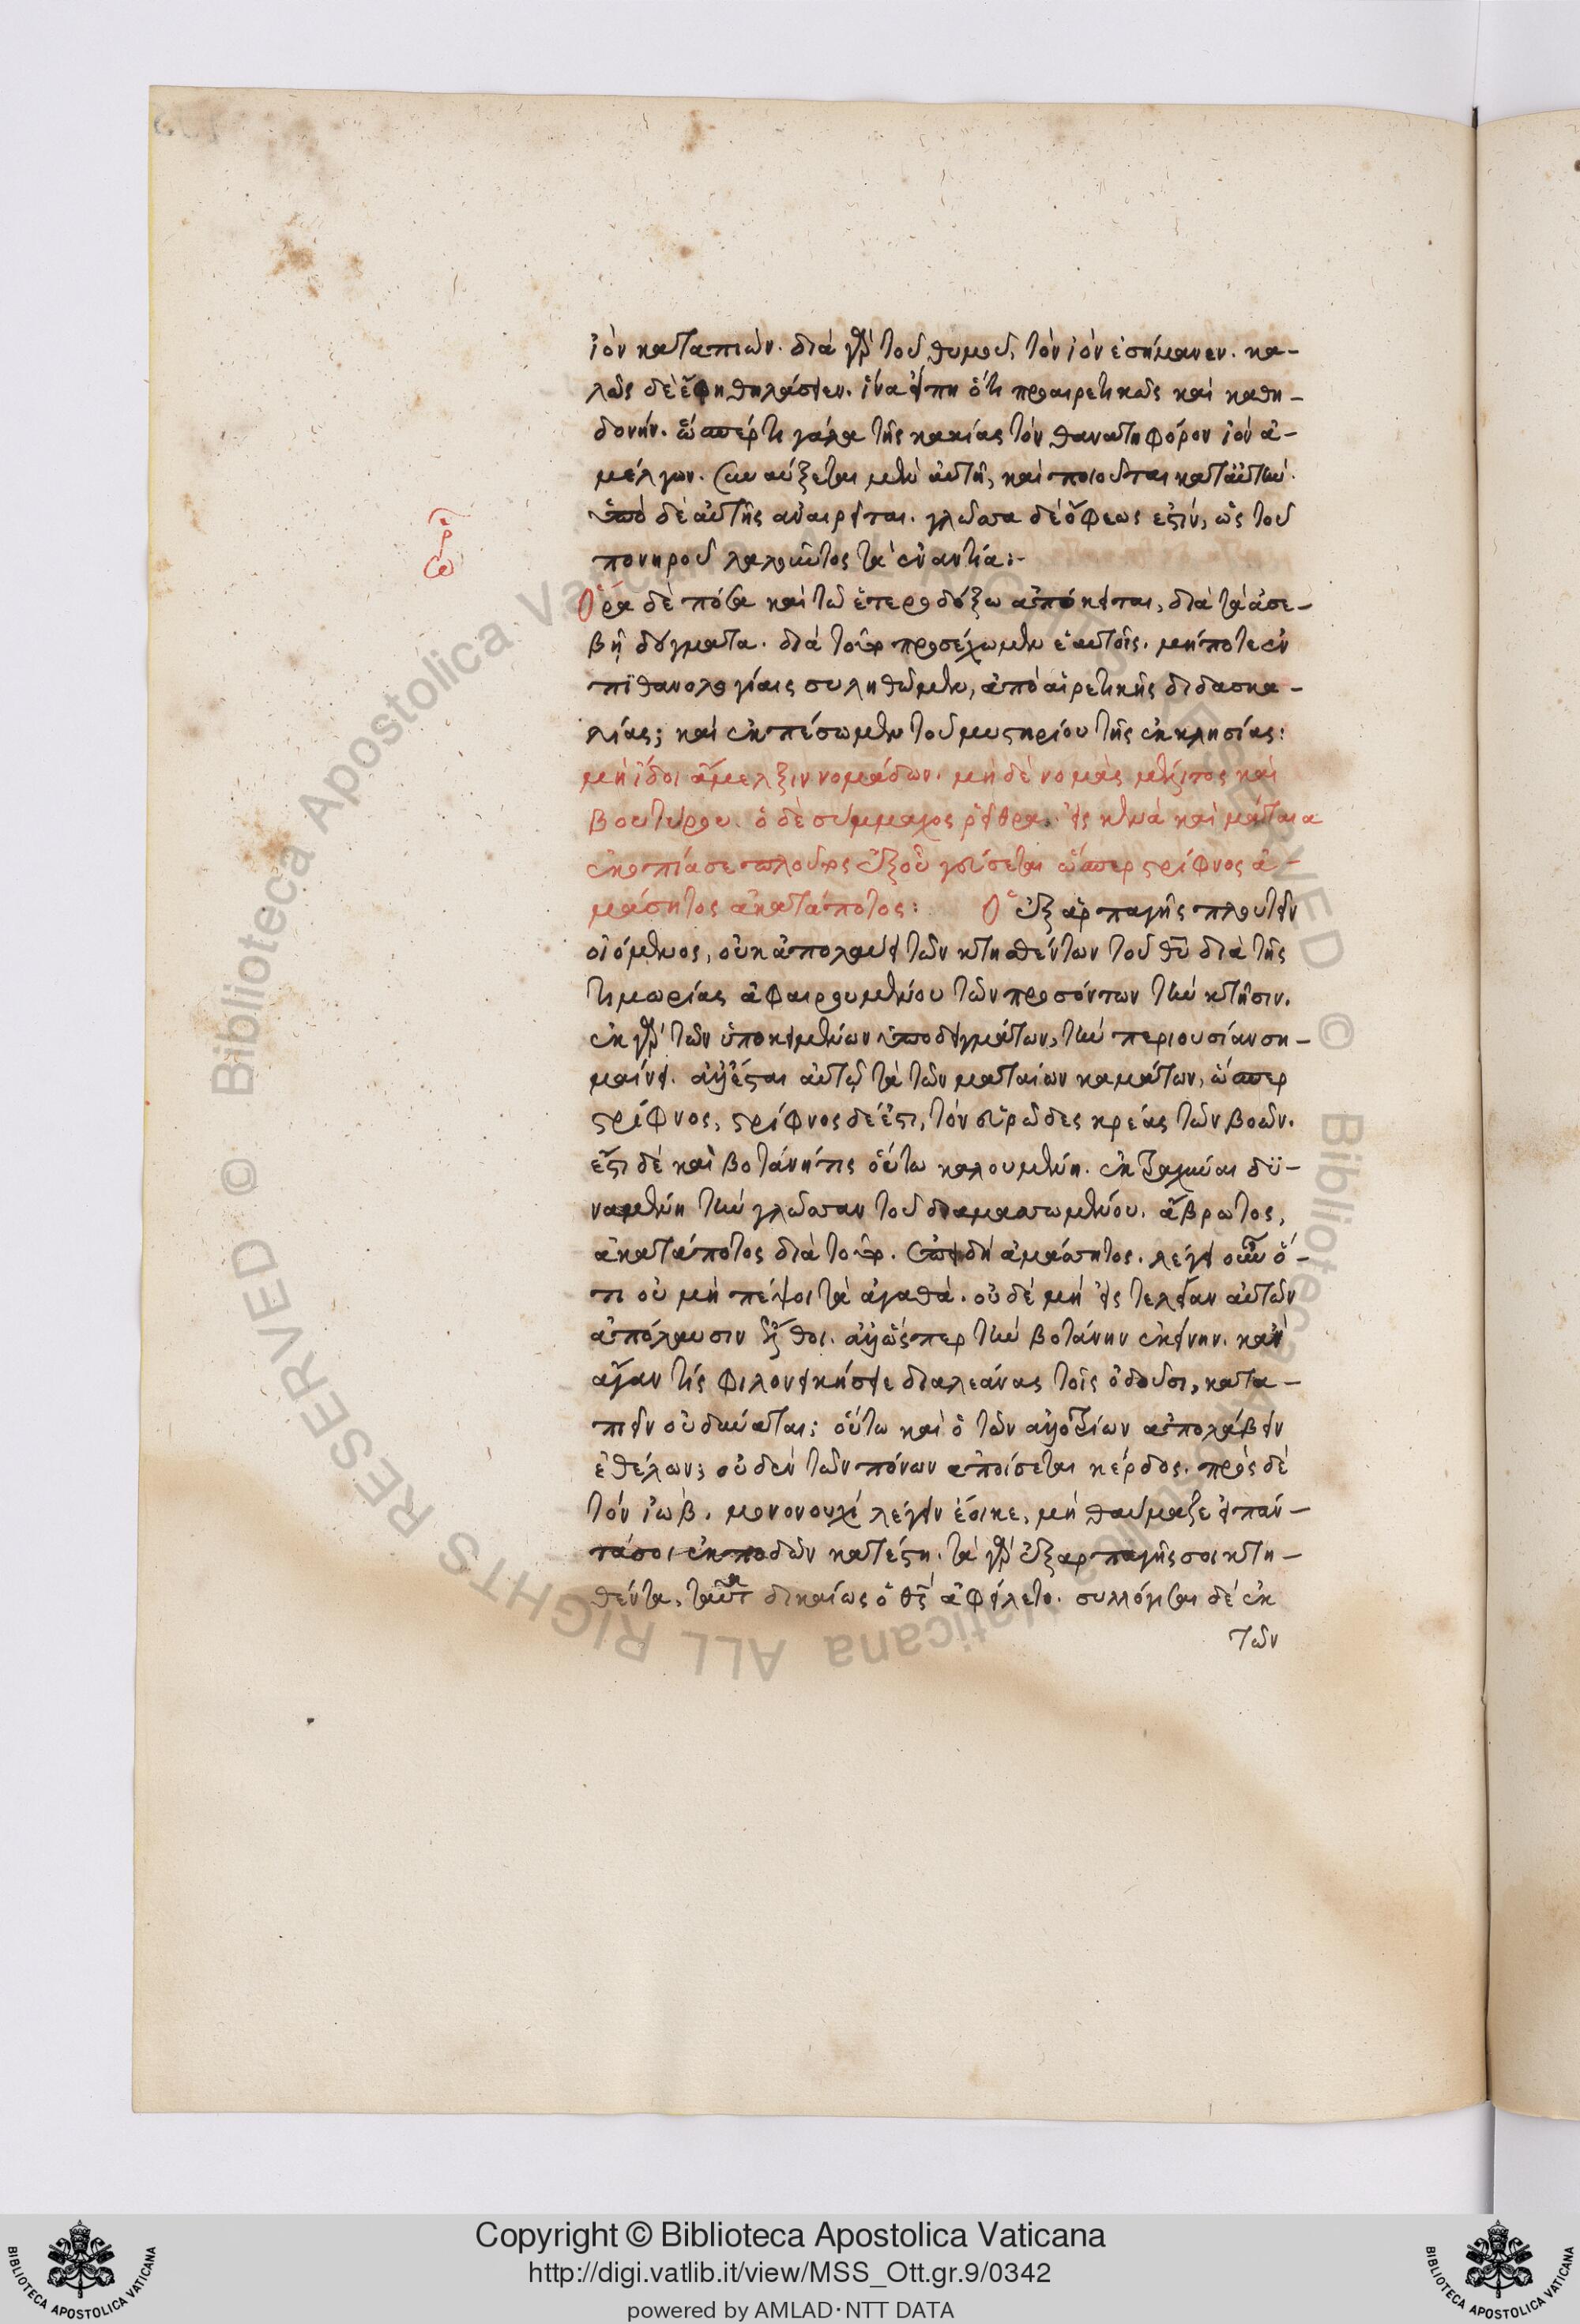 ἰὸν καταπιών. διὰ γὰρ τοῦ θυμοῦ, τὸν ἰὸν ἐσήμανεν. κα-
λῶς δὲ ἔφη θηλάσειεν. ἵνα εἴπη ὅτι προαιρετικῶς καὶ καθη-
δονήν. ὥσπέρ τι γάλα τῆς κακίας τὸν θανατηφόρον ἰὸν ἀ-
μέλγων. συναύξεται μὲν αὐτῆ, καὶ ποιοῦται κατ' αὐτὴν.
ὑπὸ δὲ αὐτῆς ἀναιρεῖται. γλῶσσα δὲ ὄφεως ἐστίν, ὡς τοῦ
πονηροῦ λαλοῦντος τὰ ἐναντία:-
ὡρ
Ὅρα δὲ πόσα καὶ τῶ ἑτεροδόξω ἀπόκειται, διὰ τὰ ἀσε-
βῆ δόγματα. διὰ τοῦτο προσέχωμεν ἑαυτοῖς. μήποτε ἐν
πιθανολογίαις συληθῶμεν, ἀπὸ αἱρετικῆς διδασκα-
λίας; καὶ ἐκπέσωμεν τοῦ μυστηρίου τῆς ἐκκλησίας:
μὴ ἴδοι ἄμελξιν νομάδων. μὴ δὲ νομὰς μέλιτος καὶ
βουτύρου. ὁ δὲ σύμμαχος ῥεῖθρα. εἰς κενὰ καὶ μάταια
ἐκοπίασε πλοῦτος ἐξ οὗ γεύσεται ὥσπερ στρίφνος ἀ-
μάσητος ἀκατάποτος: Ὁ ἐξ ἁρπαγῆς πλουτεῖν
οἰόμενος, οὐκ ἀπολαύει τῶν κτηθέντων τοῦ θῦ διὰ τῆς
τιμωρίας ἀφαιρουμένου τῶν προσόντων τὴν κτῆσιν.
ἐκ γὰρ τῶν ὑποκειμένων ὑποδειγμάτων, τὴν περιουσίαν ση-
μαίνει. ἀλλ' ἔσται αὐτῷ τὰ τῶν ματαίων καμάτων, ὥσπερ
στρίφνος, στρίφνος δέ ἐστι, τὸν νευρῶδες κρέας τῶν βοῶν.
ἔστι δὲ καὶ βοτάνη τις οὕτω καλουμένη. ἐκτραχῦναι δυ-
ναμένη τὴν γλῶσσαν τοῦ διαμασσωμένου. ἄβρωτος,
ἀκατάποτος διὰ τοῦτο. ἐπειδὴ ἀμάσητος. λέγει οὖν ὅ-
τι οὐ μὴ πέψοι τὰ ἀγαθά. οὐδὲ μὴ εἰς τελείαν αὐτῶν
ἀπόλαυσιν ἔλθοι. ἀλλ' ὥσπερ τὴν βοτάνην ἐκείνην. κἂν
ἄγαν τίς φιλονεικήσειε διαλεάνας τοῖς ὀδοῦσι, κατα-
πιεῖν οὐ δύναται; οὕτω καὶ ὁ τῶν ἀλλοτρίων ἀπολάβειν
ἐθέλων; οὐδὲν τῶν πόνων ἀποίσεται κέρδος. πρὸς δὲ
τὸν ἰώβ. μονονουχὶ λέγειν ἔοικε, μὴ θαύμαζε εἰ πάν-
τα σοι ἐκποδῶν κατέστη. τὰ γὰρ ἐξ ἁρπαγῆς σοι κτη-
θέντα, ταῦτα δικαίως ὁ θς ἀφείλετο. συλλόγισαι δὲ ἐκ
τῶν
Copyright © Biblioteca Apostolica Vaticana
http://digi.vatlib.it/view/MSS_Ott.gr.9/0342
powered by AMLAD·NTT DATA